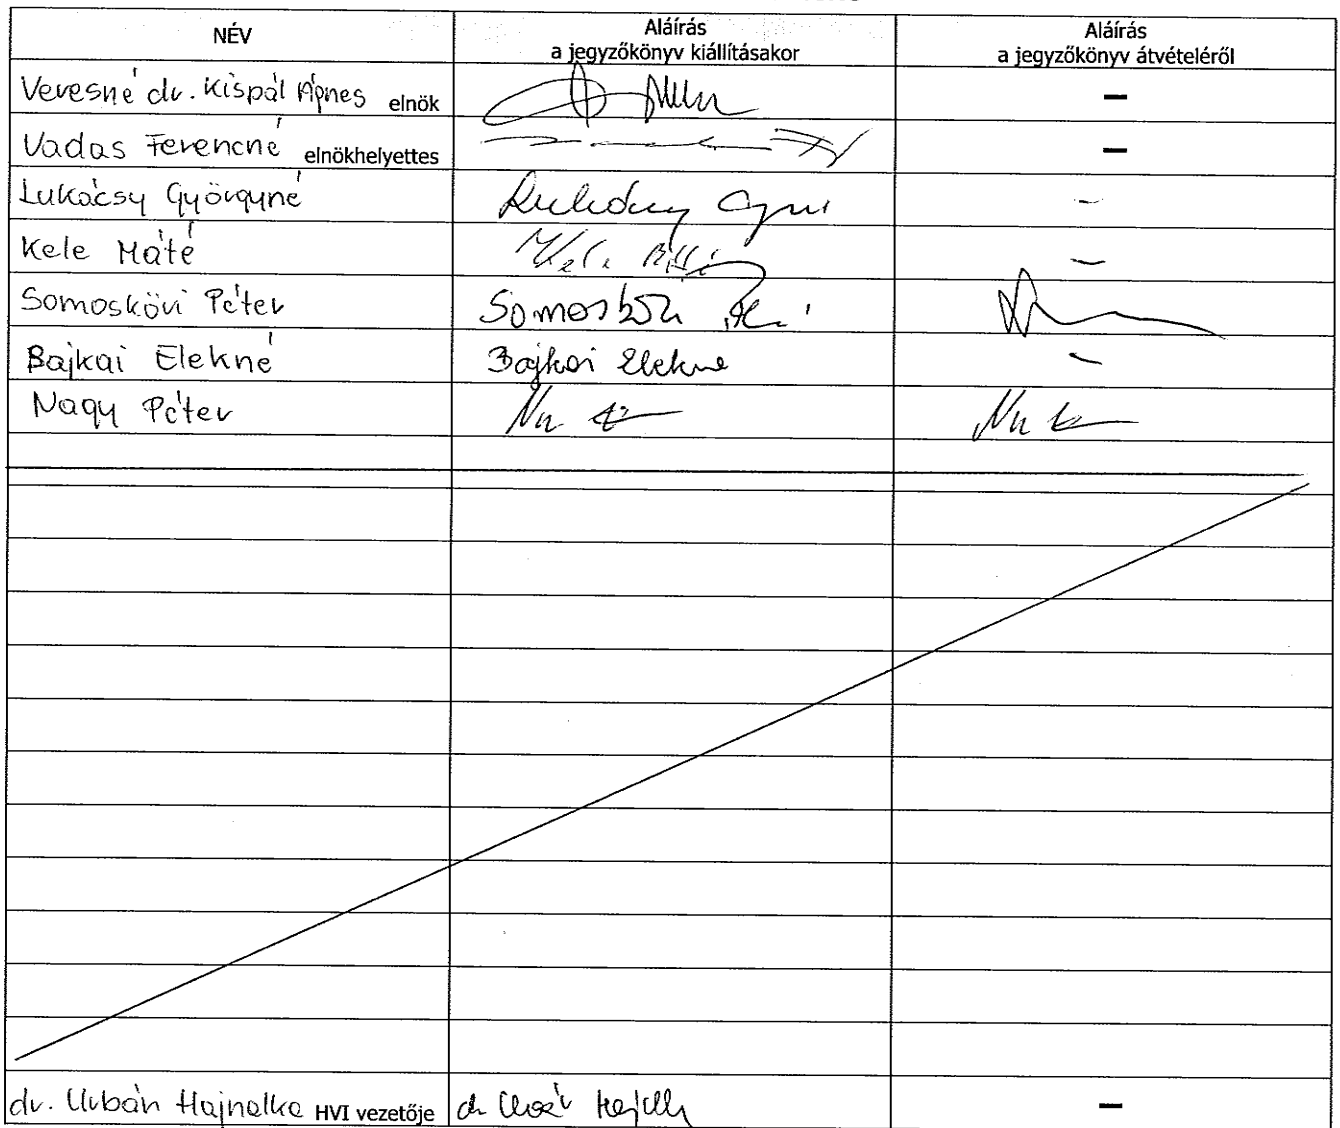 NÉV
Aláírás
a jegyzőkönyv kiállításakor
Aláírás
a jegyzőkönyv átvételéről
Veresné dr. Kispál Ágnes elnök
–
Vadas Ferencné elnökhelyettes
–
Lukácsy Györgyné
–
Kele Máté
–
Somoskövi Péter
Bajkai Elekné Bajkai Elekné
–
Nagy Péter
dr. Urbán Hajnalka HVI vezetője
–